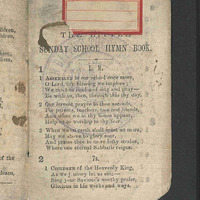 THE LITTLE
SUNDAY SCHOOL HYMN BOOK.
1 L. M.
1 ASSEMBLED in our school once more,
O Lord, thy blessing we implore;
We meet to read and sing and pray,
Be with us, then, through this thy day.
2 Our fervent prayer to thee ascends,
For parents, teachers, foes and friends,
And when we in thy house appear,
Help us to worship in thy fear.
3 When we on earth shall meet no more,
May we above to glory soar,
And praise thee in more lofty strains,
Where one eternal Sabbath reigns.
2 7s.
1 CHILDREN of the Heavenly King,
As we journey let us sing;
Sing your Saviour's worthy praise,
Glorious in his works and ways.
of the